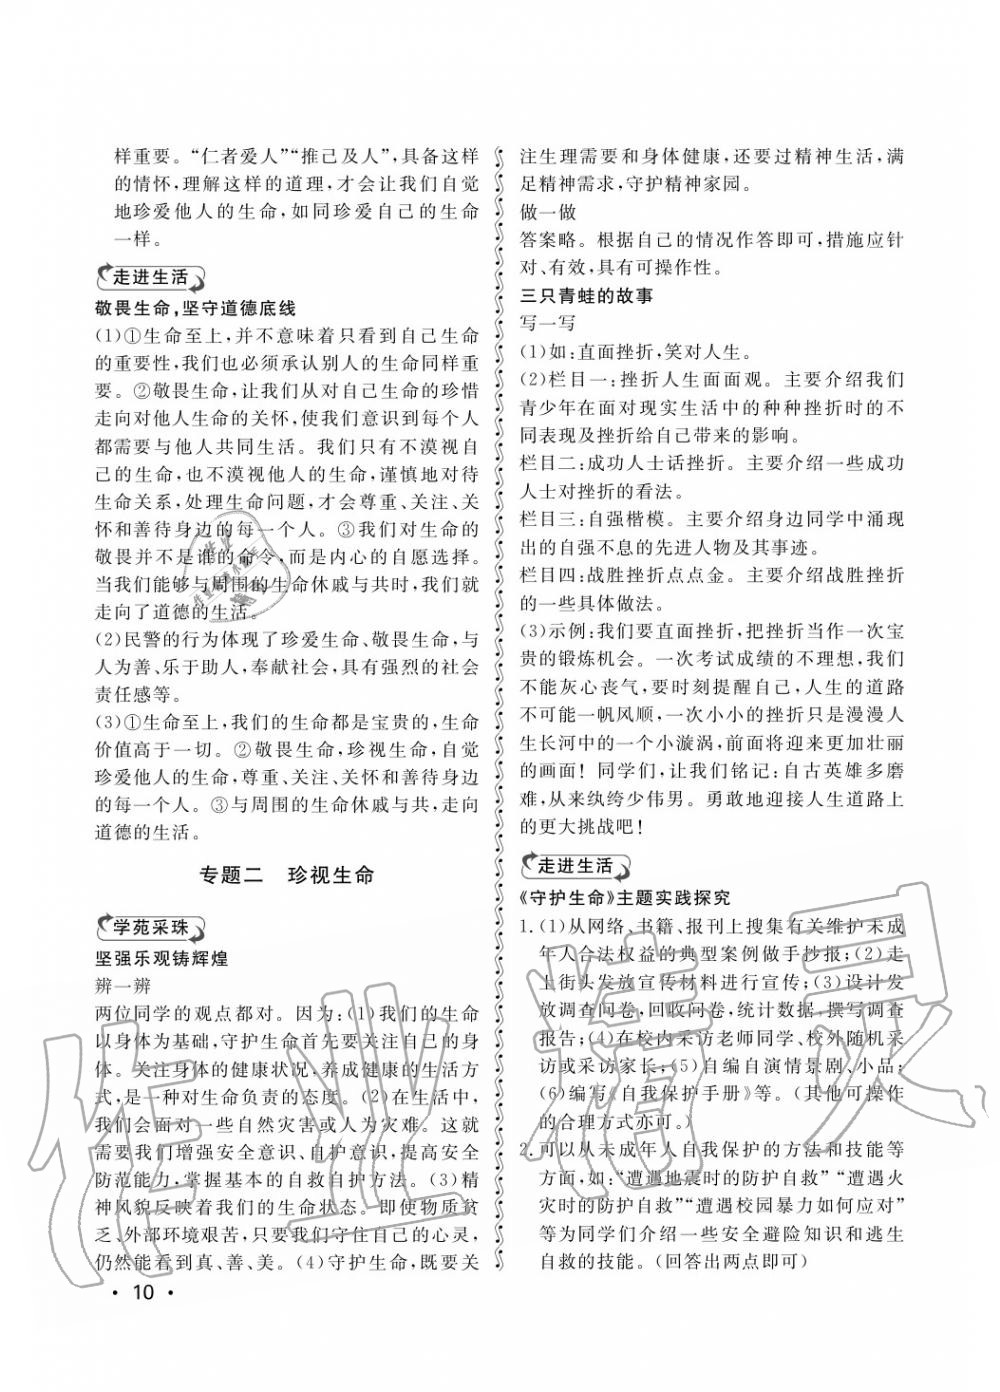 样重要。“仁者爱人”“推己及人”，具备这样
的情怀，理解这样的道理，才会让我们自觉
地珍爱他人的生命，如同珍爱自己的生命
一样。
走进生活
敬畏生命，坚守道德底线
(1)①生命至上，并不意味着只看到自己生命
的重要性，我们也必须承认别人的生命同样重
要。②敬畏生命，让我们从对自己生命的珍惜
走向对他人生命的关怀，使我们意识到每个人
都需要与他人共同生活。我们只有不漠视自
己的生命，也不漠视他人的生命，谨慎地对待
生命关系，处理生命问题，才会尊重、关注、关
怀和善待身边的每一个人。③我们对生命的
敬畏并不是谁的命令，而是内心的自愿选择。
当我们能够与周围的生命休戚与共时，我们就
走向了道德的生活。
(2)民警的行为体现了珍爱生命、敬畏生命，与
人为善、乐于助人，奉献社会，具有强烈的社会
责任感等。
(3)①生命至上，我们的生命都是宝贵的，生命
价值高于一切。②敬畏生命，珍视生命，自觉
珍爱他人的生命，尊重、关注、关怀和善待身边
的每一个人。③与周围的生命休戚与共，走向
道德的生活。
专题二 珍视生命
学苑采珠
坚强乐观铸辉煌
辨一辨
两位同学的观点都对。因为：(1)我们的生命
以身体为基础，守护生命首先要关注自己的身
体。关注身体的健康状况，养成健康的生活方
式，是一种对生命负责的态度。(2)在生活中，
我们会面对一些自然灾害或人为灾难。这就
需要我们增强安全意识、自护意识，提高安全
防范能力，掌握基本的自救自护方法。(3)精
神风貌反映着我们的生命状态。即使物质贫
乏、外部环境艰苦，只要我们守住自己的心灵，
仍然能看到真、善、美。(4)守护生命，既要关
注生理需要和身体健康，还要过精神生活，满
足精神需求，守护精神家园。
做一做
答案略。根据自己的情况作答即可，措施应针
对、有效，具有可操作性。
三只青蛙的故事
写一写
(1)如：直面挫折，笑对人生。
(2)栏目一：挫折人生面面观。主要介绍我们
青少年在面对现实生活中的种种挫折时的不
同表现及挫折给自己带来的影响。
栏目二：成功人士话挫折。主要介绍一些成功
人士对挫折的看法。
栏目三：自强楷模。主要介绍身边同学中涌现
出的自强不息的先进人物及其事迹。
栏目四：战胜挫折点点金。主要介绍战胜挫折
的一些具体做法。
(3)示例：我们要直面挫折，把挫折当作一次宝
贵的锻炼机会。一次考试成绩的不理想，我们
不能灰心丧气，要时刻提醒自己，人生的道路
不可能一帆风顺，一次小小的挫折只是漫漫人
生长河中的一个小漩涡，前面将迎来更加壮丽
的画面！同学们，让我们铭记：自古英雄多磨
难，从来纨绔少伟男。勇敢地迎接人生道路上
的更大挑战吧！
走进生活
《守护生命》主题实践探究
1. (1)从网络、书籍、报刊上搜集有关维护未成
年人合法权益的典型案例做手抄报；(2)走
上街头发放宣传材料进行宣传；(3)设计发
放调查问卷，回收问卷，统计数据，撰写调查
报告；(4)在校内采访老师同学、校外随机采
访或采访家长；(5)自编自演情景剧、小品；
(6)编写《自我保护手册》等。（其他可操作
的合理方式亦可。）
2. 可以从未成年人自我保护的方法和技能等
方面，如：“遭遇地震时的防护自救”“遭遇火
灾时的防护自救”“遭遇校园暴力如何应对”
等为同学们介绍一些安全避险知识和逃生
自救的技能。（回答出两点即可）
· 10 ·
作业精灵